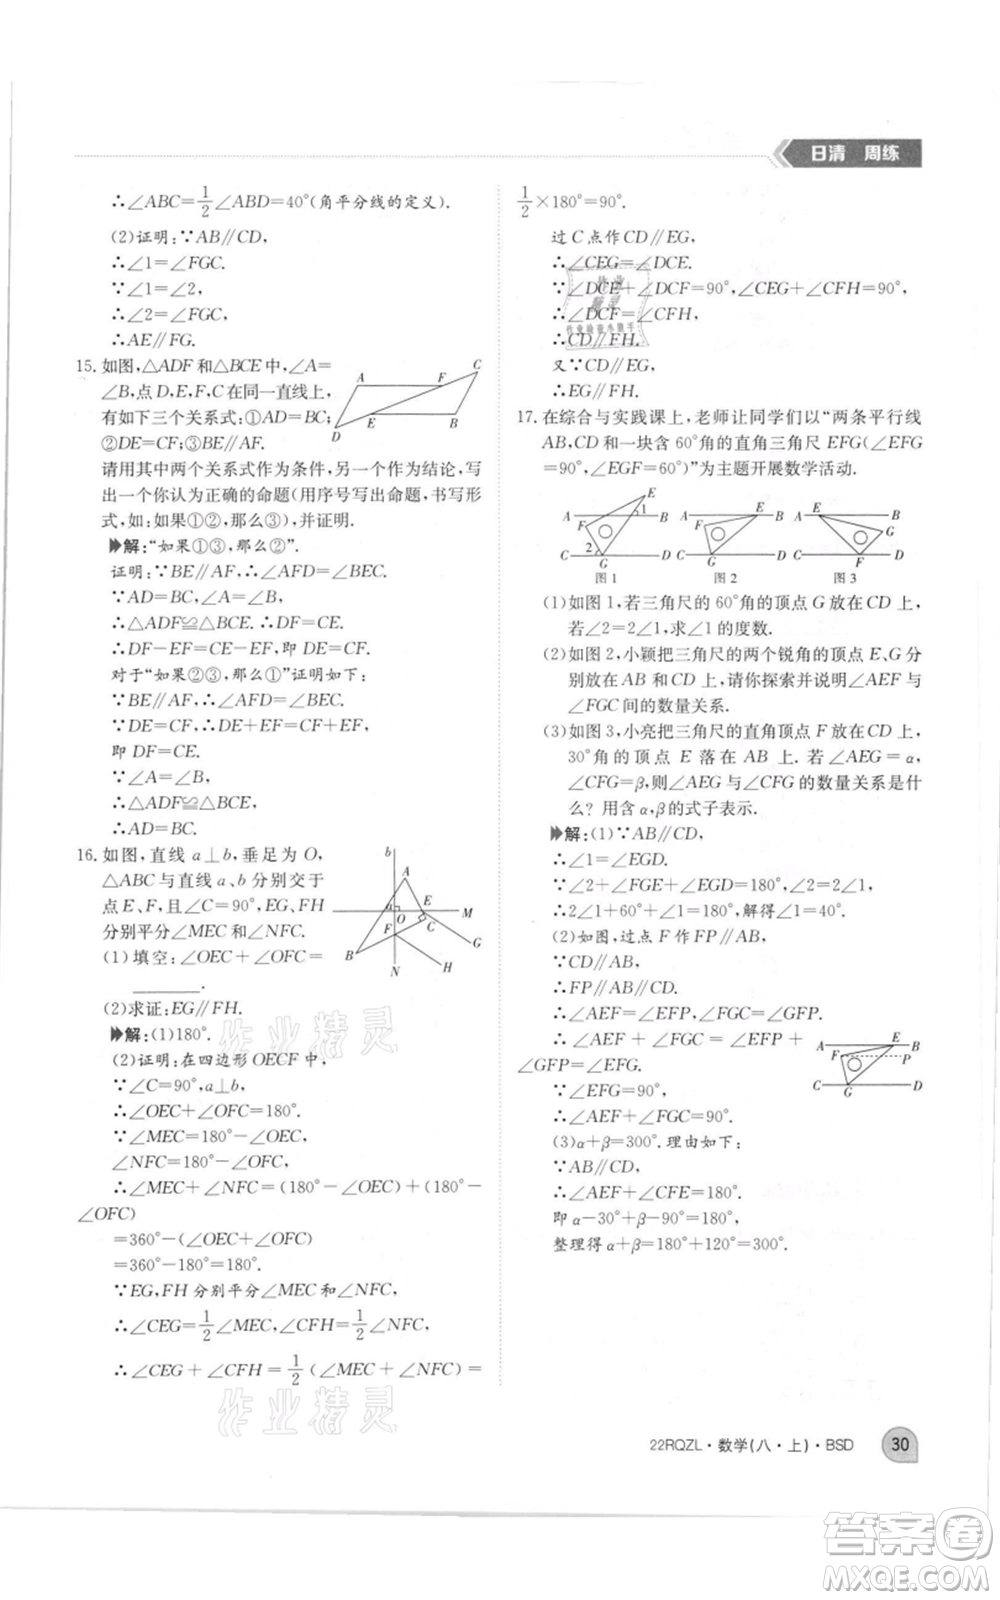 日清 周练
∴∠ABC=$\frac{1}{2}$∠ABD=40°(角平分线的定义).
(2)证明:∵AB∥CD,
∴∠1=∠FGC.
∵∠1=∠2,
∴∠2=∠FGC,
∴AE∥FG.
15. 如图,△ADF和△BCE中,∠A=
∠B,点D,E,F,C在同一直线上,
有如下三个关系式:①AD=BC;
②DE=CF;③BE∥AF.
请用其中两个关系式作为条件,另一个作为结论,写
出一个你认为正确的命题(用序号写出命题,书写形
式,如:如果①②,那么③),并证明.
A F C
D E B
解:“如果①③,那么②”.
证明:∵BE∥AF,∴∠AFD=∠BEC.
∵AD=BC,∠A=∠B,
∴△ADF≌△BCE,∴DF=CE.
∴DF-EF=CE-EF,即DE=CF.
对于“如果②③,那么①”证明如下:
∵BE∥AF,∴∠AFD=∠BEC.
∵DE=CF,∴DE+EF=CF+EF,
即DF=CE.
∵∠A=∠B,
∴△ADF≌△BCE,
∴AD=BC.
16. 如图,直线a⊥b,垂足为O,
△ABC与直线a、b分别交于
点E、F,且∠C=90°,EG、FH
分别平分∠MEC和∠NFC.
(1)填空:∠OEC+∠OFC=
________.
(2)求证:EG∥FH.
b A a O E M F C G B H N
解:(1)180°.
(2)证明:在四边形OECF中,
∵∠C=90°,a⊥b,
∴∠OEC+∠OFC=180°.
∵∠MEC=180°-∠OEC,
∠NFC=180°-∠OFC,
∴∠MEC+∠NFC=(180°-∠OEC)+(180°-
∠OFC)
=360°-(∠OEC+∠OFC)
=360°-180°=180°.
∵EG,FH分别平分∠MEC和∠NFC,
∴∠CEG=$\frac{1}{2}$∠MEC,∠CFH=$\frac{1}{2}$∠NFC,
∴∠CEG+∠CFH=$\frac{1}{2}$(∠MEC+∠NFC)=
$\frac{1}{2}$×180°=90°.
过C点作CD∥EG,
∴∠CEG=∠DCE.
∵∠DCE+∠DCF=90°,∠CEG+∠CFH=90°,
∴∠DCF=∠CFH,
∴CD∥FH.
又∵CD∥EG,
∴EG∥FH.
17. 在综合与实践课上,老师让同学们以“两条平行线
AB,CD和一块含60°角的直角三角尺EFG(∠EFG
=90°,∠EGF=60°)”为主题开展数学活动.
A F E 1 B C 2 G D
图1
A F E B C G D
图2
A E B G C F D
图3
(1)如图1,若三角尺的60°角的顶点G放在CD上,
若∠2=2∠1,求∠1的度数.
(2)如图2,小颖把三角尺的两个锐角的顶点E、G分
别放在AB和CD上,请你探索并说明∠AEF与
∠FGC间的数量关系.
(3)如图3,小亮把三角尺的直角顶点F放在CD上,
30°角的顶点E落在AB上.若∠AEG=α,
∠CFG=β,则∠AEG与∠CFG的数量关系是什
么?用含α,β的式子表示.
解:(1)∵AB∥CD,
∴∠1=∠EGD.
∵∠2+∠FGE+∠EGD=180°,∠2=2∠1,
∴2∠1+60°+∠1=180°,解得∠1=40°.
(2)如图,过点F作FP∥AB,
∵CD∥AB,
∴FP∥AB∥CD.
∴∠AEF=∠EFP,∠FGC=∠GFP.
∴∠AEF+∠FGC=∠EFP+
∠GFP=∠EFG.
∵∠EFG=90°,
∴∠AEF+∠FGC=90°.
A E B F P C G D
(3)α+β=300°.理由如下:
∵AB∥CD,
∴∠AEF+∠CFE=180°.
即α-30°+β-90°=180°,
整理得α+β=180°+120°=300°.
作业精灵
作业精灵
22RQZL·数学(八·上)·BSD 30
答案卷
MXQE.COM